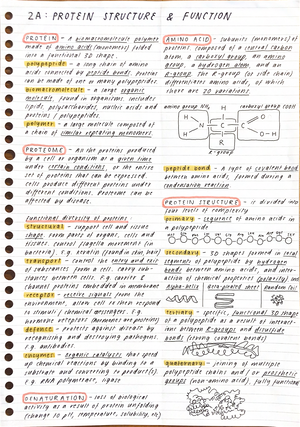 2A: PROTEIN STRUCTURE & FUNCTION
PROTEIN - a biomacromolecule polymer
made of amino acids (monomers) folded
into a functional 3D shape.
polypeptide - a long chain of amino
acids connected by peptide bonds. Proteins
can be made of one or many polypeptides.
biomacromolecule - a large organic
molecule found in organisms. Includes
lipids, polysaccharides, nucleic acids and
proteins / polypeptides.
polymer - a large molecule composed of
a chain of similar repeating monomers.
PROTEOME - All the proteins produced
by a cell or organism at a given time
under certain conditions, or the entire
set of proteins that can be expressed.
Cells produce different proteins under
different conditions. Proteome can be
affected by disease.
functional diversity of proteins -
structural - support cell and tissue
shape. Form parts of organs, cells and
tissues. Control flagella movement (in
bacteria). E.g. keratin (found in skin, hair)
transport - Control the entry and exit
of substances from a cell. Carry
between cells. E.g. carrier &
channel proteins embedded in membrane
receptor - receive signals from the
environment, allow cell to then respond
to stimuli / chemical messengers. E.g.
hormone receptors (hormones are proteins)
defence - Protects against disease by
recognising and destroying pathogens.
E.g. antibodies.
enzymes - organic catalysts that
up chemical reactions by binding to a
substrate and converting to product(s).
E.g. RNA polymerase, ligase
DENATURATION - loss of biological
activity as a result of protein unfolding
(change to pH, temperature, solubility, etc)
AMINO ACID - Subunits (monomers) of
proteins, composed of a central carbon
atom, a carboxyl group, an amino
group, a hydrogen atom and an
R-group. The R-group (or side chain)
differentiates amino acids, of which
there are 20 variations.
amino group NH₂
H
carboxyl group COOH
H
N
C
C
O-H
H
R
O
R-group
peptide bond - a type of covalent bond
between amino acids, formed during a
condensation reaction.
PROTEIN STRUCTURE - is divided into
four levels of complexity
primary - sequence of amino acids in
a polypeptide
secondary - 3D shapes formed in
segments of polypeptide by hydrogen
bonds between amino acids, and
action of chemical properties (polarity)
alpha-helix
beta-pleated sheet
random coil
tertiary - specific, functional 3D shape
of a polypeptide as a result of
ions between R-groups and disulfide
bonds (strong covalent bonds)
quaternary - joining of multiple
polypeptide chains and / or prosthetic
groups (non-amino acid), fully functional